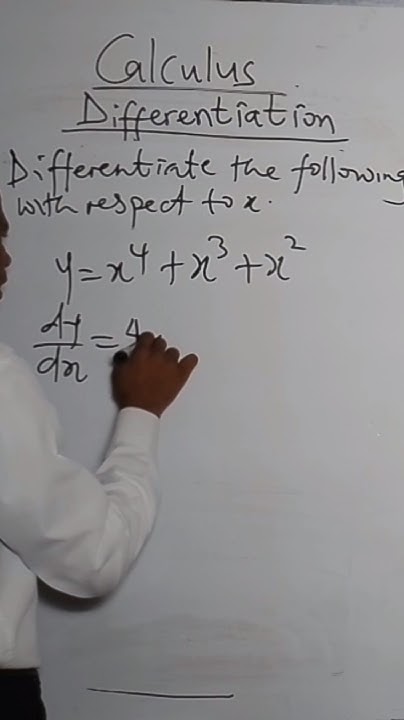 Calculus
Differentiation
Differentiate the following
with respect to x.
y = x⁴ + x³ + x²
dy/dx = 4